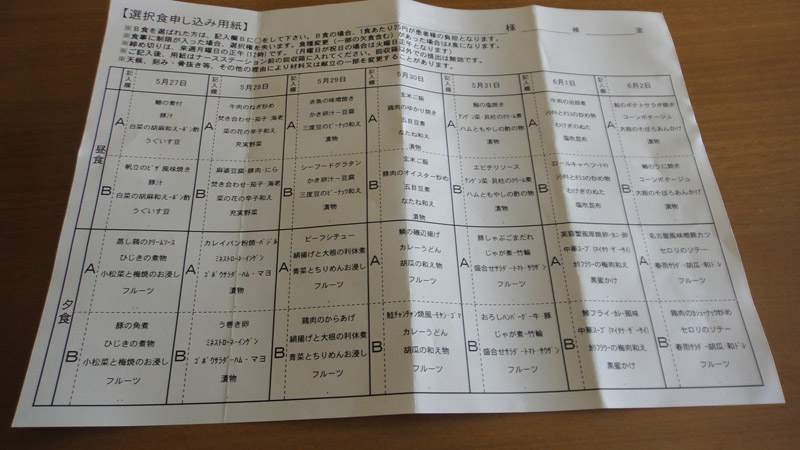 【選択食申し込み用紙】
様
棟
室
※B食を選ばれた方は、記入欄Bに○をして下さい。B食の場合、1食あたり75円が患者様の負担となります。
※食事に制限が入った場合、選択権を失います。食種変更（一部の欠食含む）があった場合はA食になります。
※締め切りは、来週月曜日の正午(12時)です。（月曜日が祝日の場合は火曜日正午となります）
※ご記入後、用紙はナースステーション前の回収箱に入れてください。回収箱以外での提出は無効です。
※天候、刻み・骨抜き等、その他の理由により材料又は献立の一部を変更することがあります。
記入欄 5月27日 記入欄 5月28日 記入欄 5月29日 記入欄 5月30日 記入欄 5月31日 記入欄 6月1日 記入欄 6月2日
昼食
A
鯖の煮付
豚汁
白菜の胡麻和え-ポン酢
うぐいす豆
A
牛肉のねぎ炒め
焚き合わせ-茄子・海老
菜の花の辛子和え
充実野菜
A
赤魚の味噌焼き
かき卵汁-豆腐
三度豆のピーナッツ和え
漬物
A
玄米ご飯
鶏肉のゆかり焼き
五目豆煮
なたね和え
漬物
A
鯖の塩焼き
チンゲン菜・貝柱のクリーム煮
ハムともやしの酢の物
漬物
A
牛肉の旧姓煮
わけぎのぬた
塩吹昆布
A
鮭のポテトサラダ焼き
コーンポタージュ
大根のそぼろあんかけ
漬物
B
帆立のピザ風味焼き
豚汁
白菜の胡麻和え-ポン酢
うぐいす豆
B
麻婆豆腐-豚肉・にら
焚き合わせ-茄子・海老
菜の花の辛子和え
充実野菜
B
シーフードグラタン
かき卵汁-豆腐
三度豆のピーナッツ和え
漬物
B
玄米ご飯
豚肉のオイスター炒め
五目豆煮
なたね和え
漬物
B
エビチリソース
チンゲン菜・貝柱のクリーム煮
ハムともやしの酢の物
漬物
B
ロールキャベツ-トマト
わけぎのぬた
塩吹昆布
B
鯛のうに焼き
コーンポタージュ
大根のそぼろあんかけ
漬物
夕食
A
蒸し鶏のクリームソース
ひじきの煮物
小松菜と梅焼のお浸し
フルーツ
A
カレイパン粉焼-バジル
ミネストローネ-インゲン
ゴボウサラダ-ハム・マヨ
漬物
A
ビーフシチュー
絹揚げと大根の利休煮
青菜とちりめんお浸し
フルーツ
A
鯛の磯辺揚げ
カレーうどん
胡瓜の和え物
フルーツ
A
豚しゃぶごまだれ
じゃが煮-竹輪
盛合せサラダ-トマト・サウザン
フルーツ
A
芙蓉蟹風厚焼卵-カニ・卵
中華スープ(マイタケ・ザーサイ)
カリフラワーの梅肉和え
黒蜜かけ
A
名古屋風味噌豚カツ
セロリのソテー
春雨サラダ-胡瓜・和ドレ
フルーツ
B
豚の角煮
ひじきの煮物
小松菜と梅焼のお浸し
フルーツ
B
う巻き卵
ミネストローネ-インゲン
ゴボウサラダ-ハム・マヨ
漬物
B
鶏肉のからあげ
絹揚げと大根の利休煮
青菜とちりめんお浸し
フルーツ
B
鮭チャンチャン焼風-ミヤン・ゴマ
カレーうどん
胡瓜の和え物
フルーツ
B
おろしハンバーグ-牛・豚
じゃが煮-竹輪
盛合せサラダ-トマト・サウザン
フルーツ
B
鯵フライ-カレー風味
中華スープ(マイタケ・ザーサイ)
カリフラワーの梅肉和え
黒蜜かけ
B
鶏肉のカシューナッツ炒め
セロリのソテー
春雨サラダ-胡瓜・和ドレ
フルーツ